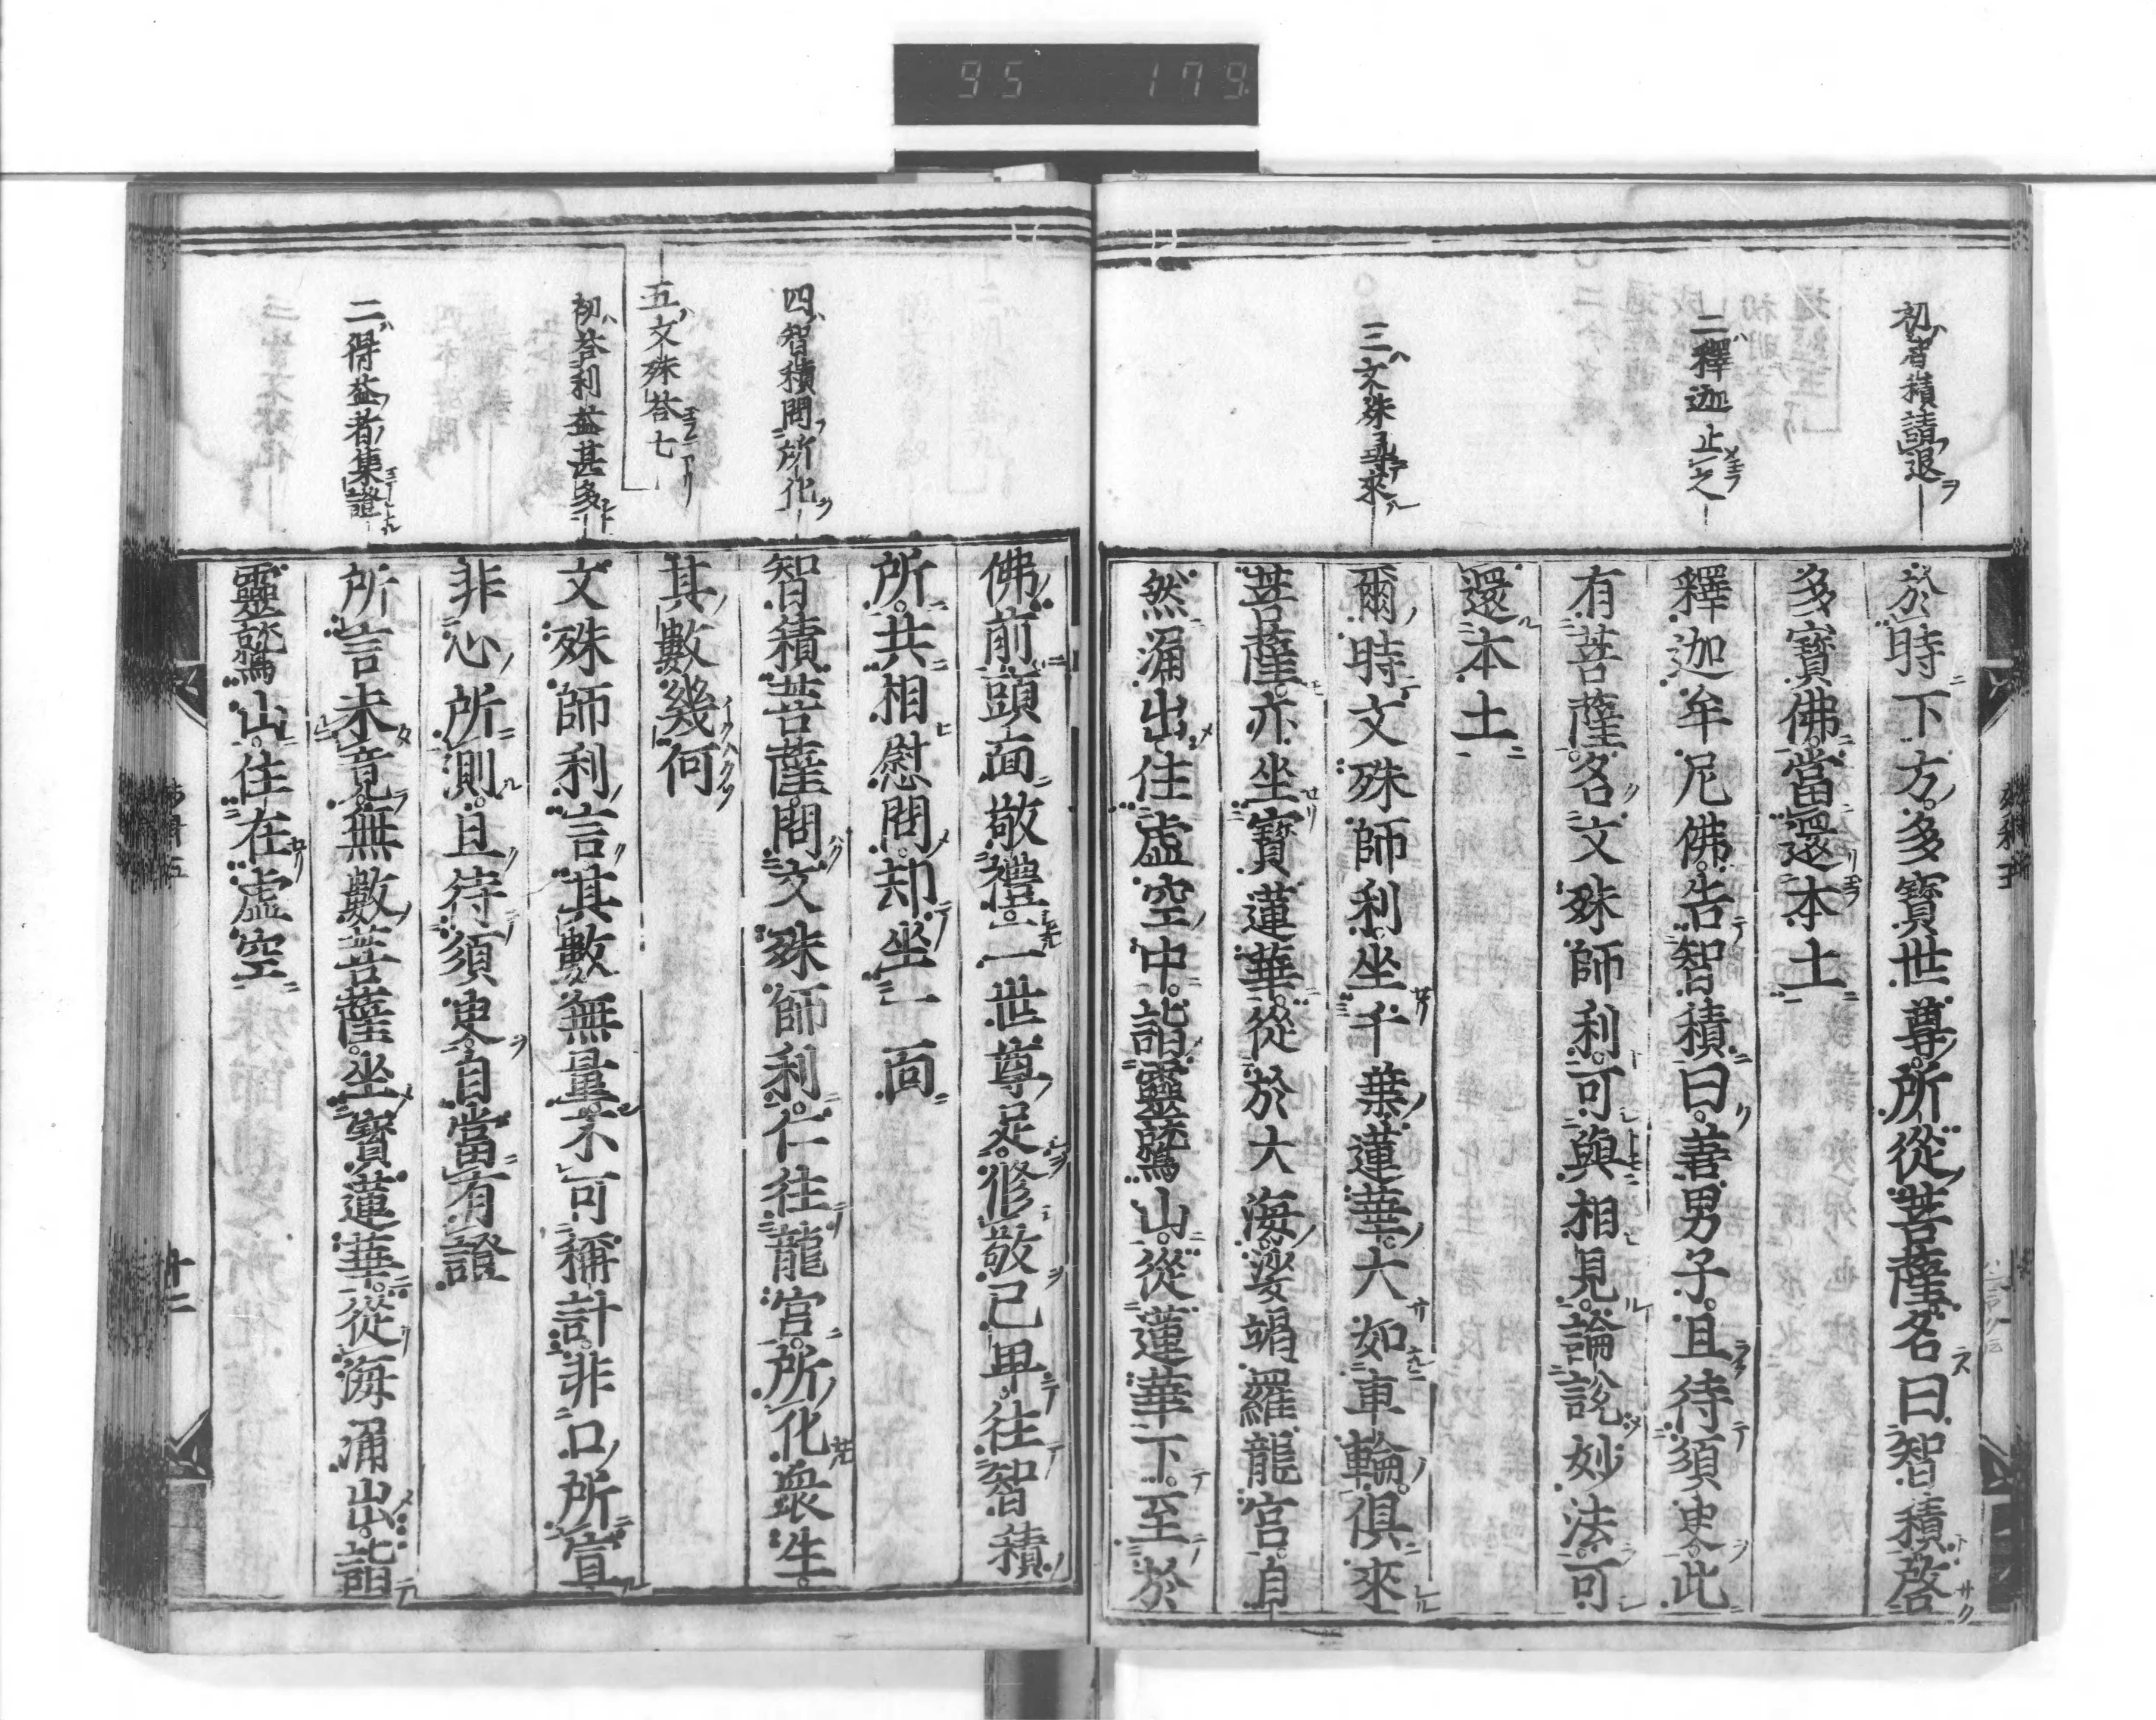 95 179
初智積請退
於時下方多寶世尊所從菩薩名曰智積啓
多寶佛當還本土
二釋迦止之
釋迦牟尼佛告智積曰善男子且待須臾此
有菩薩名文殊師利可與相見論說妙法可
還本土
三文殊尋來
爾時文殊師利坐千葉蓮華大如車輪俱來
菩薩亦坐寶蓮華從於大海娑竭羅龍宮自
然涌出住虛空中詣靈鷲山從蓮華下至於
佛前頭面敬禮二世尊足修敬已畢往智積
所共相慰問却坐一面
四智積問所化
智積菩薩問文殊師利仁往龍宮所化衆生
其數幾何
五文殊荅七
初荅利益甚多
文殊師利言其數無量不可稱計非口所宣
非心所測且待須臾自當有證
二得益者集證
所言未竟無數菩薩坐寶蓮華從海涌出詣
靈鷲山住在虛空
廿二